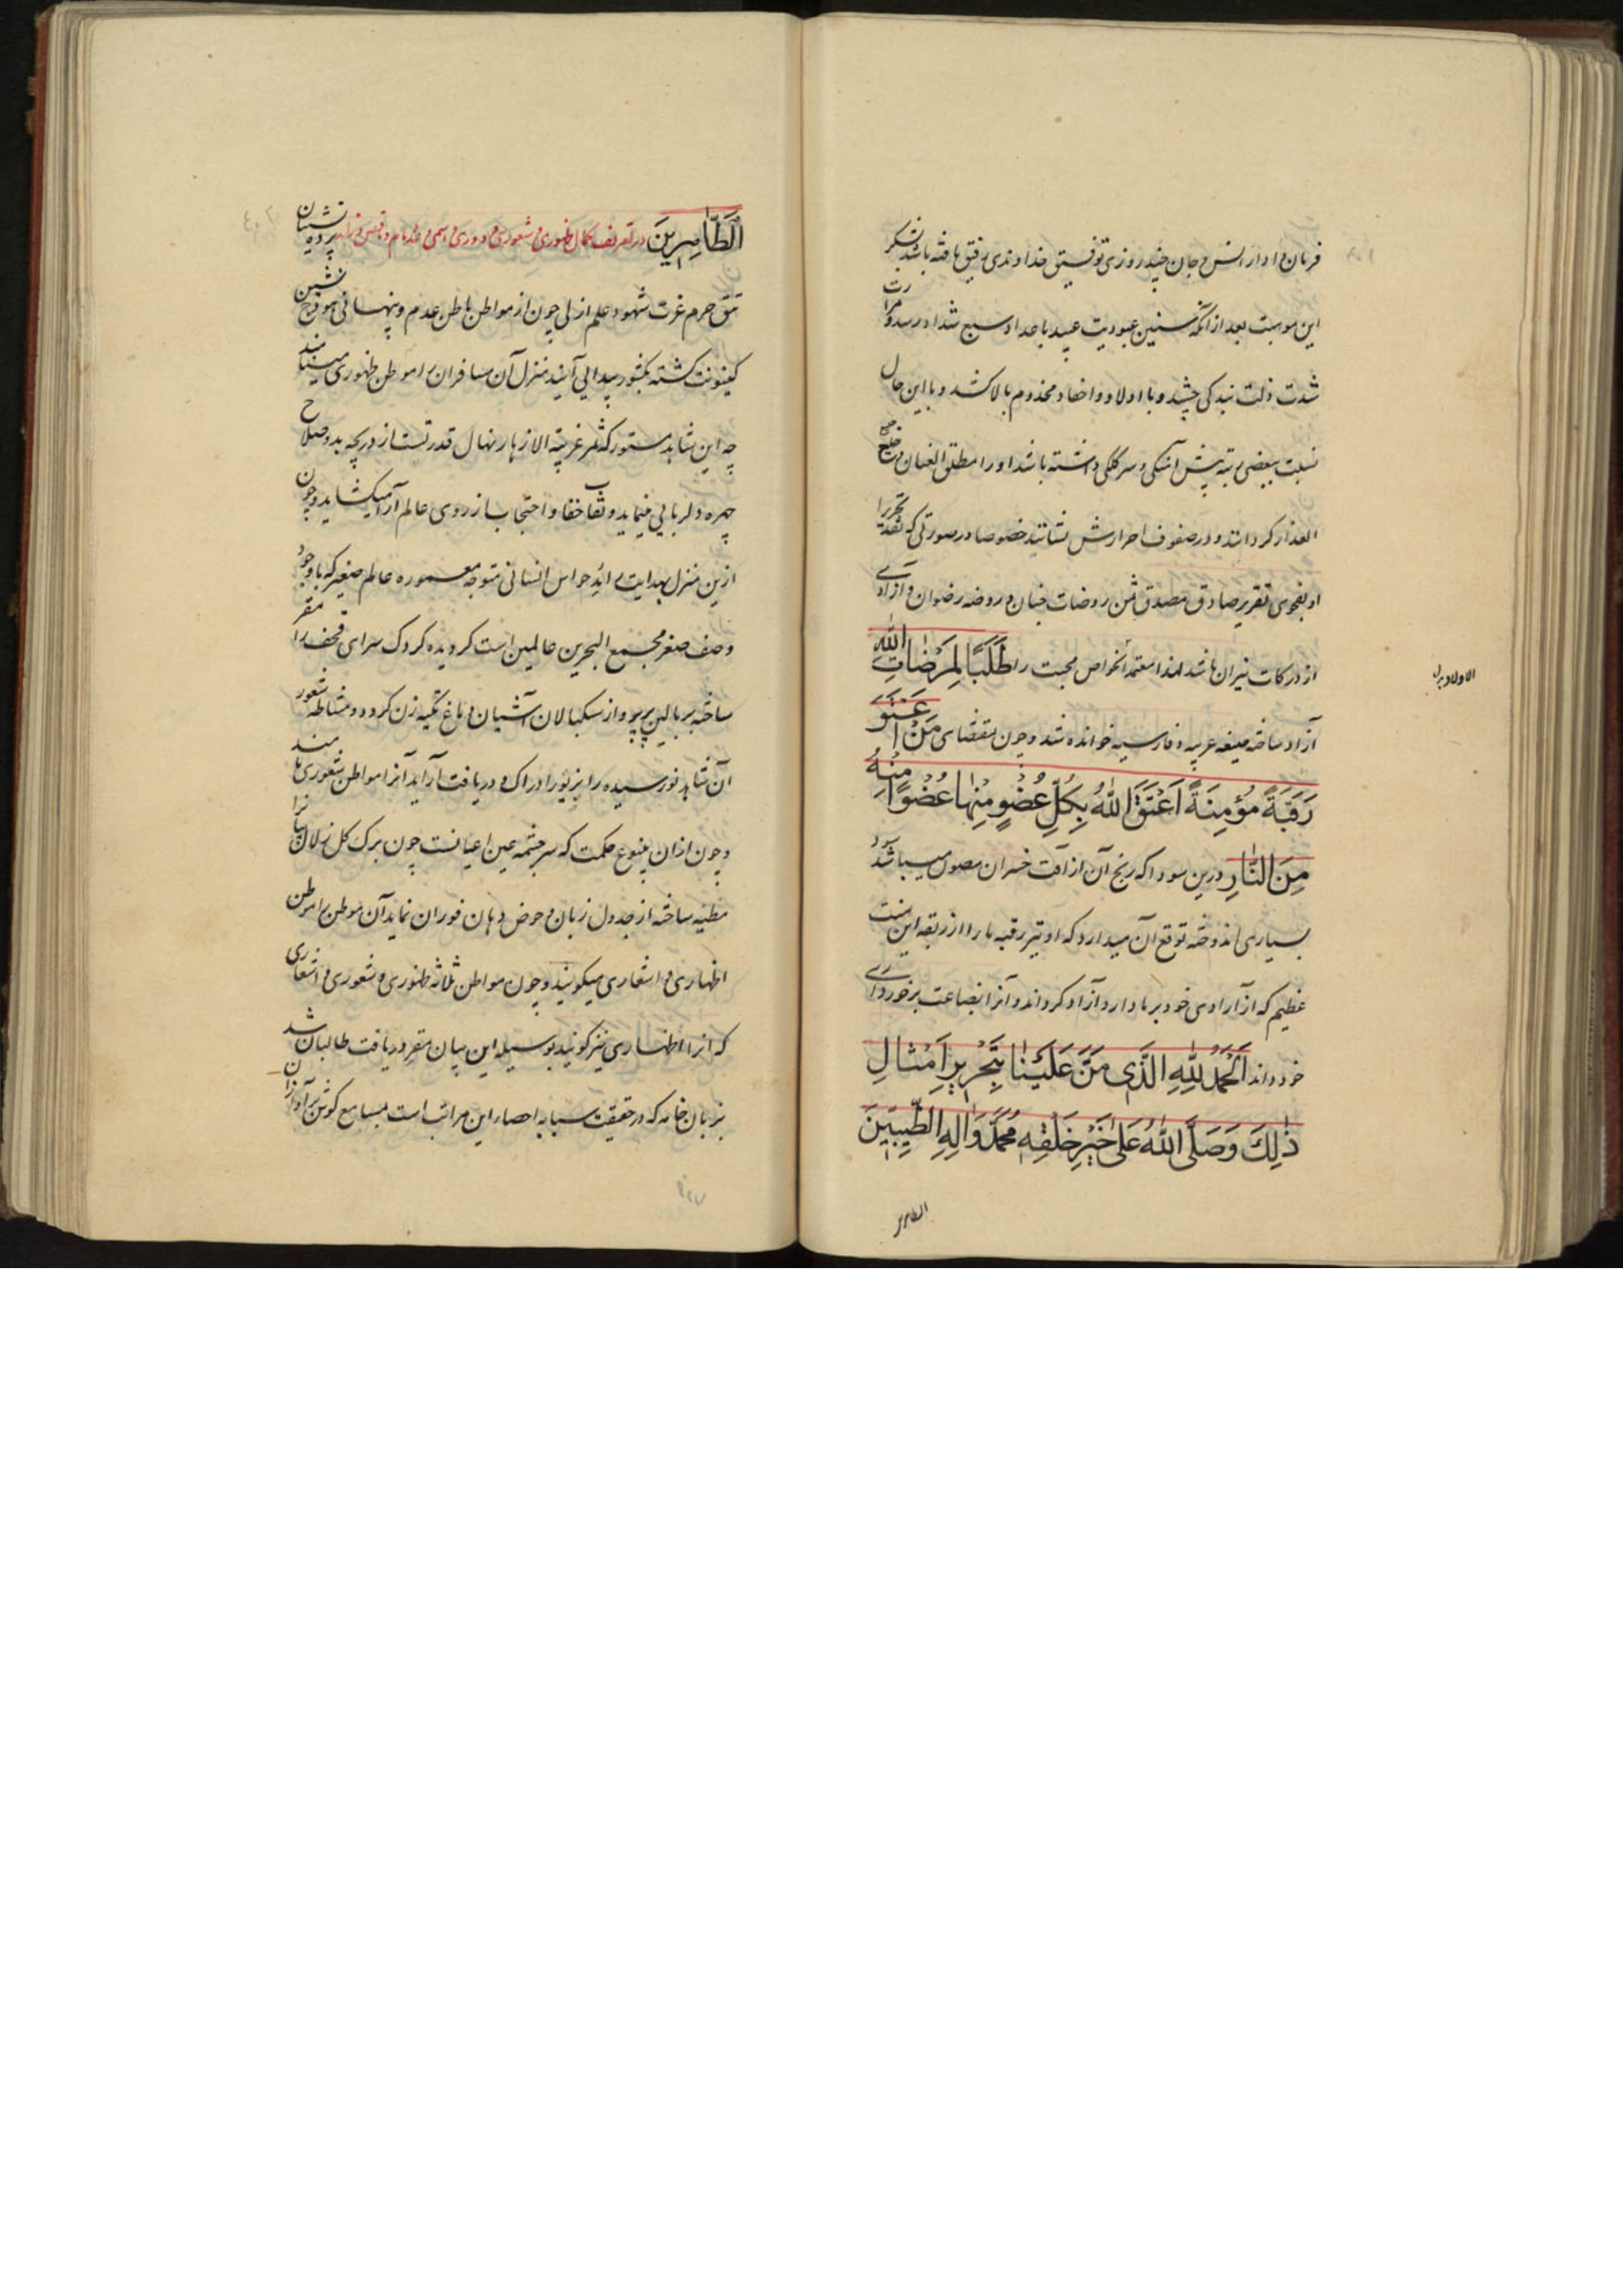 فرمان و ادار انس و جان چند روزی توفیق خداوندی رفیق یافته باشد بشکر
این موهبت بعد از آنکه سنین عبودیت عبید باعداد سبع شداد رسد و مرارت
شدت ذلت بندگی چشد و با اولاد و احفاد مخدوم بالا کشد و با این حال
نسبت ببعضی رتبه پیش آهنگی و سرکلگی داشته باشد او را مطلق العنان و خلیع
العذار گردانند و در صفوف احرارش نشانند خصوصا در صورتی که نقد تحریر
او بفحوی تقریر صادق مصدق ثمن روضات جنان و روضه رضوان و آزادی
از درکات نیران باشد لهذا معتمد الخواص محبت را طَلَبًا لِمَرْضَاتِ اللّٰهِ
آزاد ساخته صیغه عربیه و فارسیه خوانده شد و چون بمقتضای مَنْ اَعْتَقَ
رَقَبَةً مُؤْمِنَةً اَعْتَقَ اللّٰهُ بِكُلِّ عُضْوٍ مِنْهَا عُضْوًا مِنْهُ
مِنَ النَّارِ درین سودا که ربح آن از آفت خسران مصون میباشد سود
بسیاری اندوخته توقع آن میدارد که او نیز رقبه ما را از ربقه این منت
عظیم که از آزادی خود بر ما دارد آزاد گرداند و آنرا بضاعت برخورداری
خود داند اَلْحَمْدُ لِلّٰهِ الَّذِی مَنَّ عَلَیْنَا بِتَحْرِیرِ اَمْثَالِ
ذٰلِكَ وَصَلَّی اللّٰهُ عَلٰی خَیْرِ خَلْقِهِ مُحَمَّدٍ وَاٰلِهِ الطَّیِّبِینَ
الطاهر
اَلطَّاهِرِینَ در تعریف کمال ظهوری و شعوری و دوری و اسمی و پرده نشینان
تتق حرم عزت شهود علم ازلی چون از مواطن باطن عدم و پنهانی هودج نشین
کینونت گشته بکشور پیدایی آیند منزل آن مسافران را موطن ظهوری مینامند
چه این شاهد مستور که ثمر غریبة الازهار نهال قدرتست از دریچه بدو صلاح
چهره دلربایی مینماید و نقاب خفا و احتجاب از روی عالم آرا میگشاید و چون
ازین منزل بهدایت رائد حواس انسانی متوجه معموره عالم صغیر که با وجود
وصف صغر مجمع البحرین عالمین است گردیده کردک سرای قحف را مقر
ساخته بر بالین پرپرواز سبکبالان آشیان دماغ تکیه زن گردد و مشاطه شعور
آن شاهد نورسیده را بزیور ادراک و دریافت آراید آنرا مواطن شعوری نامند
و چون از آن ینبوع حکمت که سرچشمه عین اعیانست چون برک کل زلال
مطیه ساخته از جدول زبان و حوض دهان فوران نماید آن موطن را موطن
اظهاری و اشعاری میگویند و چون مواطن ثلاثه ظهوری و شعوری و اشعاری
که انرا اظهاری نیز گویند بوسیله این بیان مقرر دریافت طالبان شد
بزبان خامه که در حقیقت سبابه احصاء این مراتب است بمسامع گوش بر آوازان